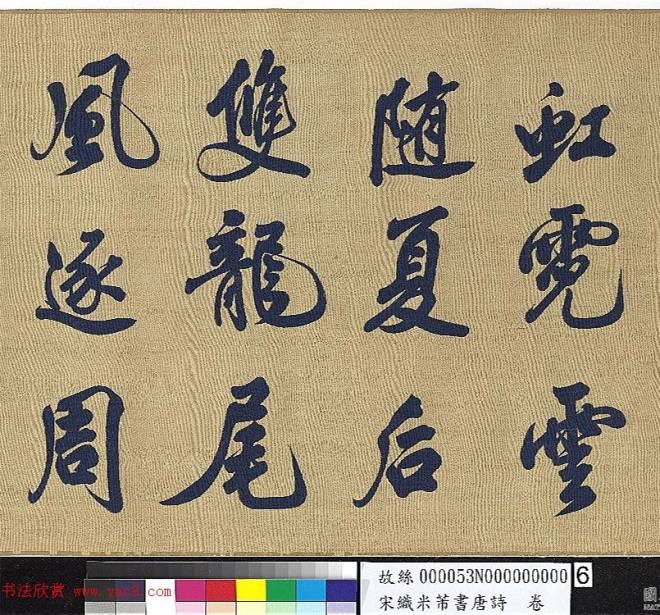 虹霓雲
随夏后
雙龍尾
風逐周
书法欣赏 www.yac8.com
故絲000053N000000000
宋織米芾書唐詩 卷
6